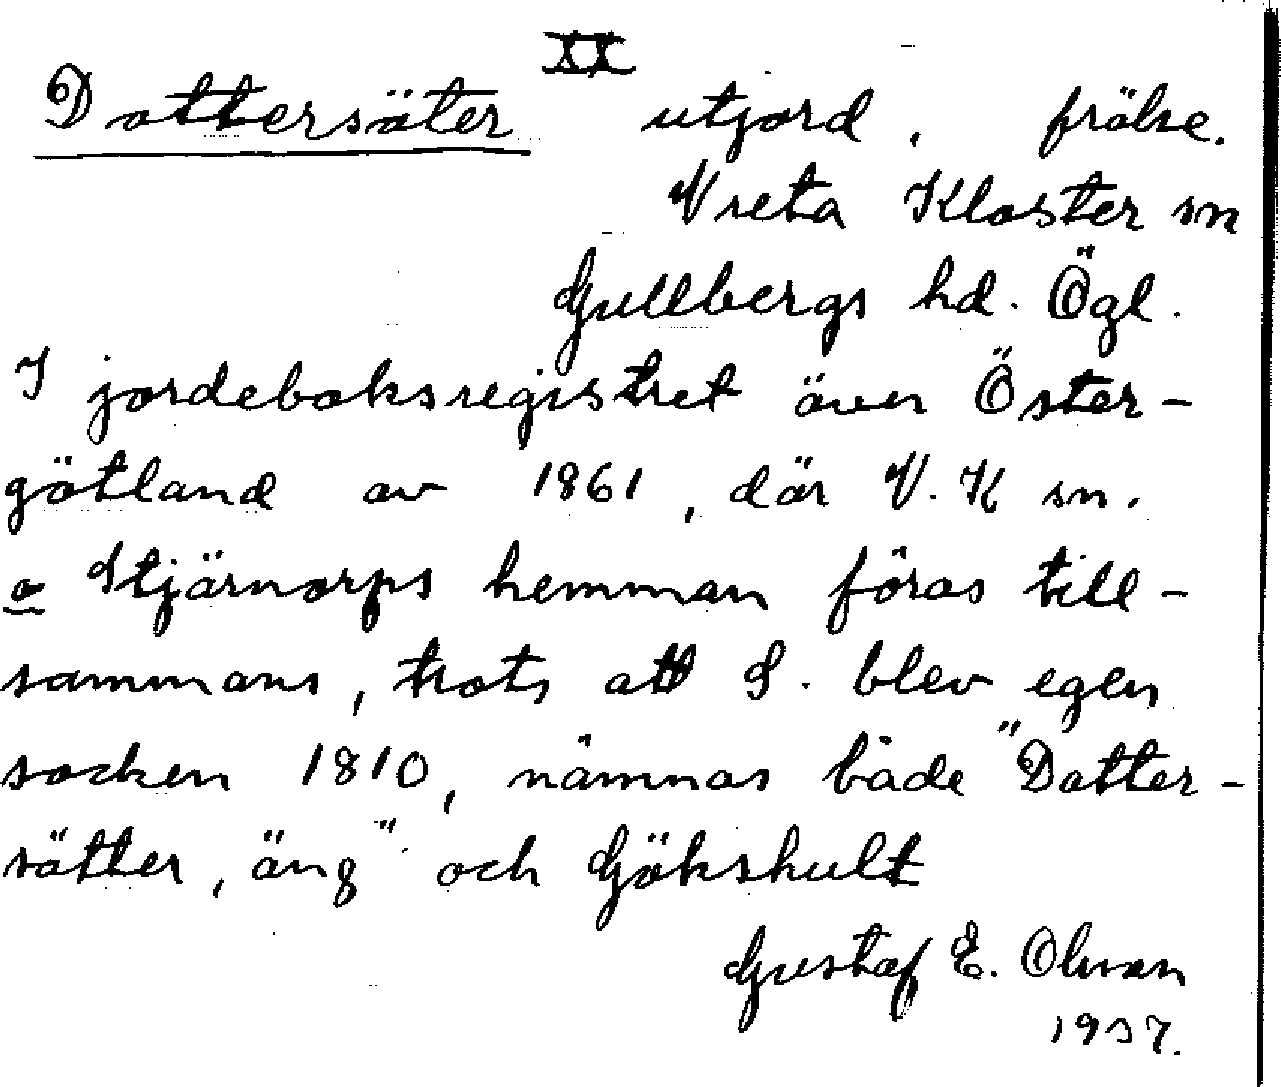 XX
Dottersäter utjord, frälse.
Vreta Kloster sn
Gullbergs hd. Ögl.
I jordeboksregistret över Öster-
götland av 1861, där V. K sn.
o Stjärnorps hemman föras till-
sammans, trots att S. blev egen
socken 1810, nämnas både "Dotter-
sätter, äng" och Gökshult
Gustaf E. Olsson
1937.